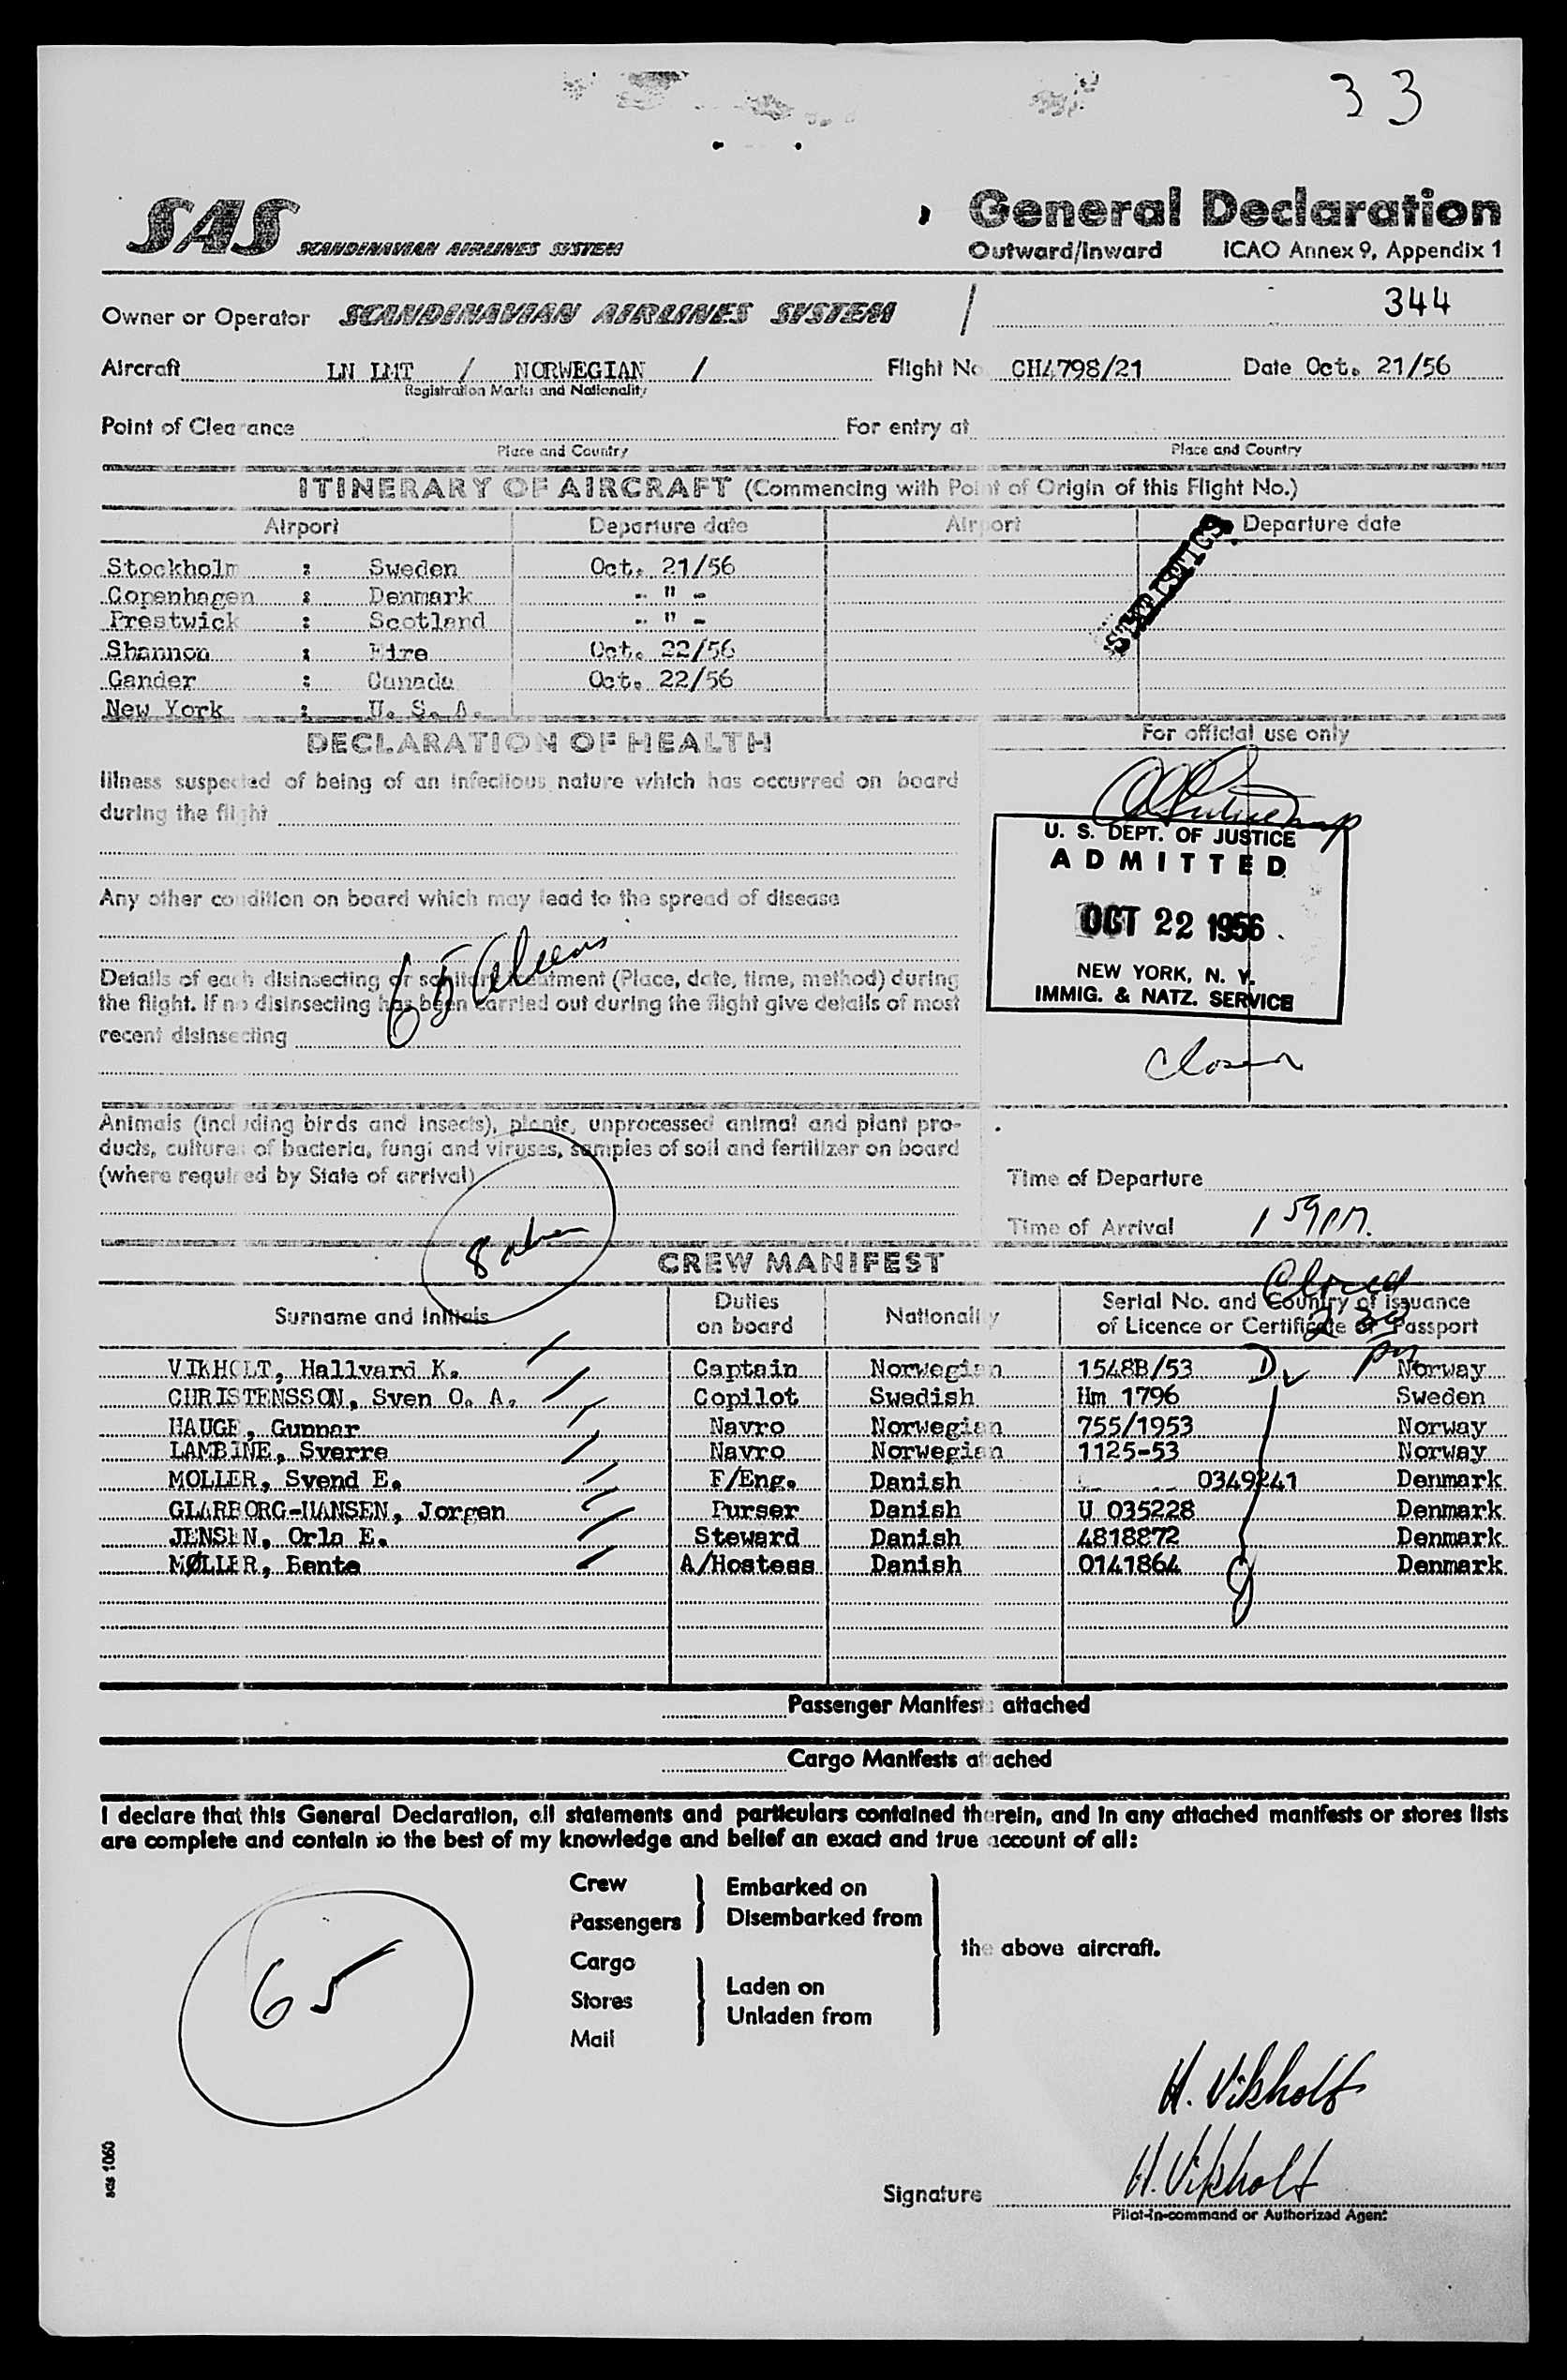 33
SAS SCANDINAVIAN AIRLINES SYSTEM
General Declaration
Outward/Inward ICAO Annex 9, Appendix 1
Owner or Operator SCANDINAVIAN AIRLINES SYSTEM / 344
Aircraft LN LMT / NORWEGIAN / Flight No CH4798/21 Date Oct. 21/56
Registration Marks and Nationality
Point of Clearance For entry at
Place and Country Place and Country
ITINERARY OF AIRCRAFT (Commencing with Point of Origin of this Flight No.)
Airport Departure date Airport Departure date
STATISTICS
Stockholm : Sweden Oct. 21/56
Copenhagen : Denmark - " -
Prestwick : Scotland - " -
Shannon : Eire Oct. 22/56
Gander : Canada Oct. 22/56
New York : U. S. A.
DECLARATION OF HEALTH
For official use only
Illness suspected of being of an infectious nature which has occurred on board
during the flight
U. S. DEPT. OF JUSTICE
ADMITTED
OCT 22 1956
NEW YORK, N. Y.
IMMIG. & NATZ. SERVICE
Any other condition on board which may lead to the spread of disease
65 Aliens
Details of each disinsecting or sanitary treatment (Place, date, time, method) during
the flight. If no disinsecting has been carried out during the flight give details of most
recent disinsecting
Closed
Animals (including birds and insects), plants, unprocessed animal and plant pro-
ducts, cultures of bacteria, fungi and viruses, samples of soil and fertilizer on board
(where required by State of arrival)
Time of Departure
Time of Arrival 1 59 PM.
8
CREW MANIFEST
Closed
2 30 PM
Surname and Initials Duties on board Nationality Serial No. and Country of issuance
of Licence or Certificate or Passport
VIKHOLT, Hallvard K. Captain Norwegian 1548B/53 Norway
CHRISTENSSON, Sven O. A. Copilot Swedish Hm 1796 Sweden
HAUGE, Gunnar Navro Norwegian 755/1953 Norway
LAMBINE, Sverre Navro Norwegian 1125-53 Norway
MOLLER, Svend E. F/Eng. Danish 0349241 Denmark
GLARBORG-HANSEN, Jorgen Purser Danish U 035228 Denmark
JENSEN, Orla E. Steward Danish 4818872 Denmark
MØLLER, Bente A/Hostess Danish 0141864 Denmark
Passenger Manifests attached
Cargo Manifests attached
I declare that this General Declaration, all statements and particulars contained therein, and in any attached manifests or stores lists
are complete and contain to the best of my knowledge and belief an exact and true account of all:
Crew
Passengers
Embarked on
Disembarked from
Cargo
Stores
Mail
Laden on
Unladen from
the above aircraft.
65
H. Vikholt
H. Vikholt
Signature
Pilot-in-command or Authorized Agent
sas 1060